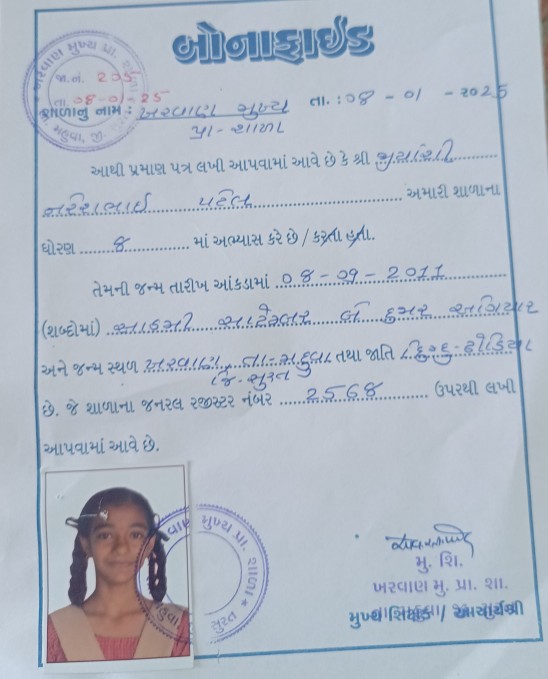 બોનાફાઈડ
ખરવાણ મુખ્ય પ્રા. શાળા
જા.નં. 205
તા. 08-01-25
મહુવા, જી.
શાળાનું નામ : ખરવાણ મુખ્ય તા. : 08 - 01 - ૨૦૨5
પ્રા - શાળા
આથી પ્રમાણ પત્ર લખી આપવામાં આવે છે કે શ્રી
નરેશભાઈ પટેલ અમારી શાળાના
ધોરણ 8 માં અભ્યાસ કરે છે / કરતા હતા.
તેમની જન્મ તારીખ આંકડામાં 08 - 09 - 2011
(શબ્દોમાં) આઠમી સપ્ટેમ્બર બે હજાર અગિયાર
અને જન્મ સ્થળ ખરવાણ તા-મહુવા તથા જાતિ હિન્દુ-ઢોડિયા
જિ-સુરત
છે. જે શાળાના જનરલ રજીસ્ટર નંબર 2568 ઉપરથી લખી
આપવામાં આવે છે.
મુખ્ય પ્રા. શાળા
મહુવા સુરત
મુ. શિ.
ખરવાણ મુ. પ્રા. શા.
મુખ્ય શિક્ષક / આચાર્યશ્રી